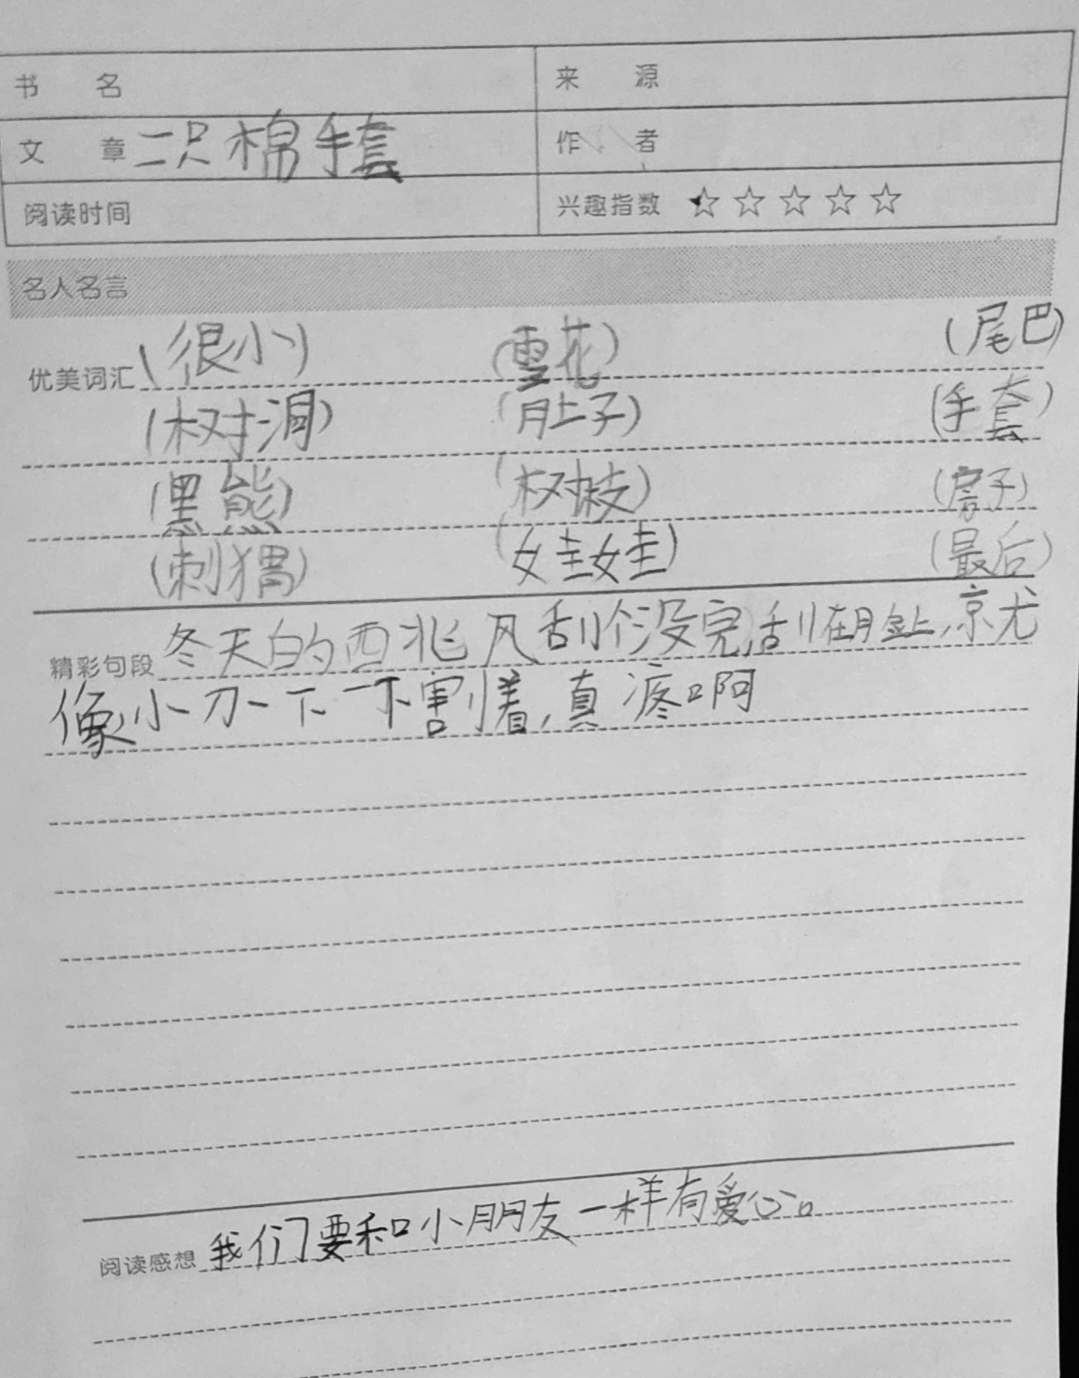 书 名 来 源
文 章 二只棉手套 作 者
阅读时间 兴趣指数 ☆☆☆☆☆
名人名言
优美词汇 (很小) (雪花) (尾巴)
(树洞) (肚子) (手套)
(黑熊) (树枝) (房子)
(刺猬) (娃娃) (最后)
精彩句段 冬天的西北风刮个没完,刮在脸上,就
像小刀一下一下割着,真疼啊
阅读感想 我们要和小朋友一样有爱心。